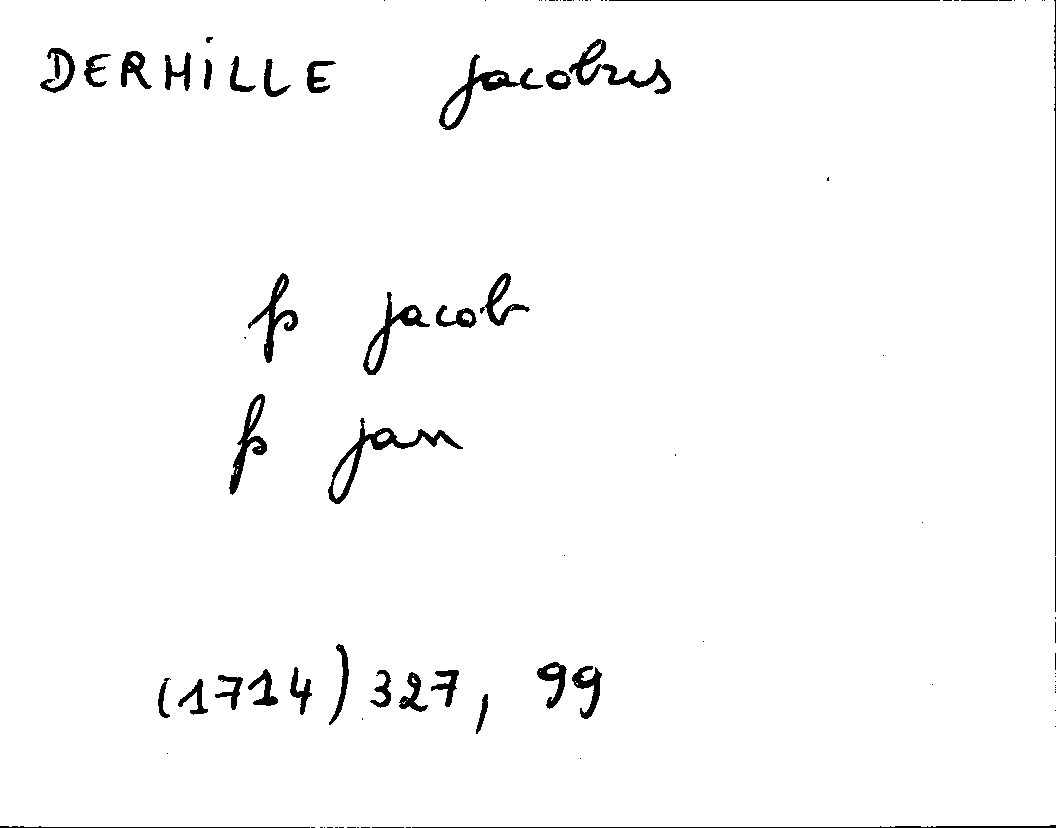 DERHILLE jacobus
fs jacob
fs jan
(1714) 327, 99